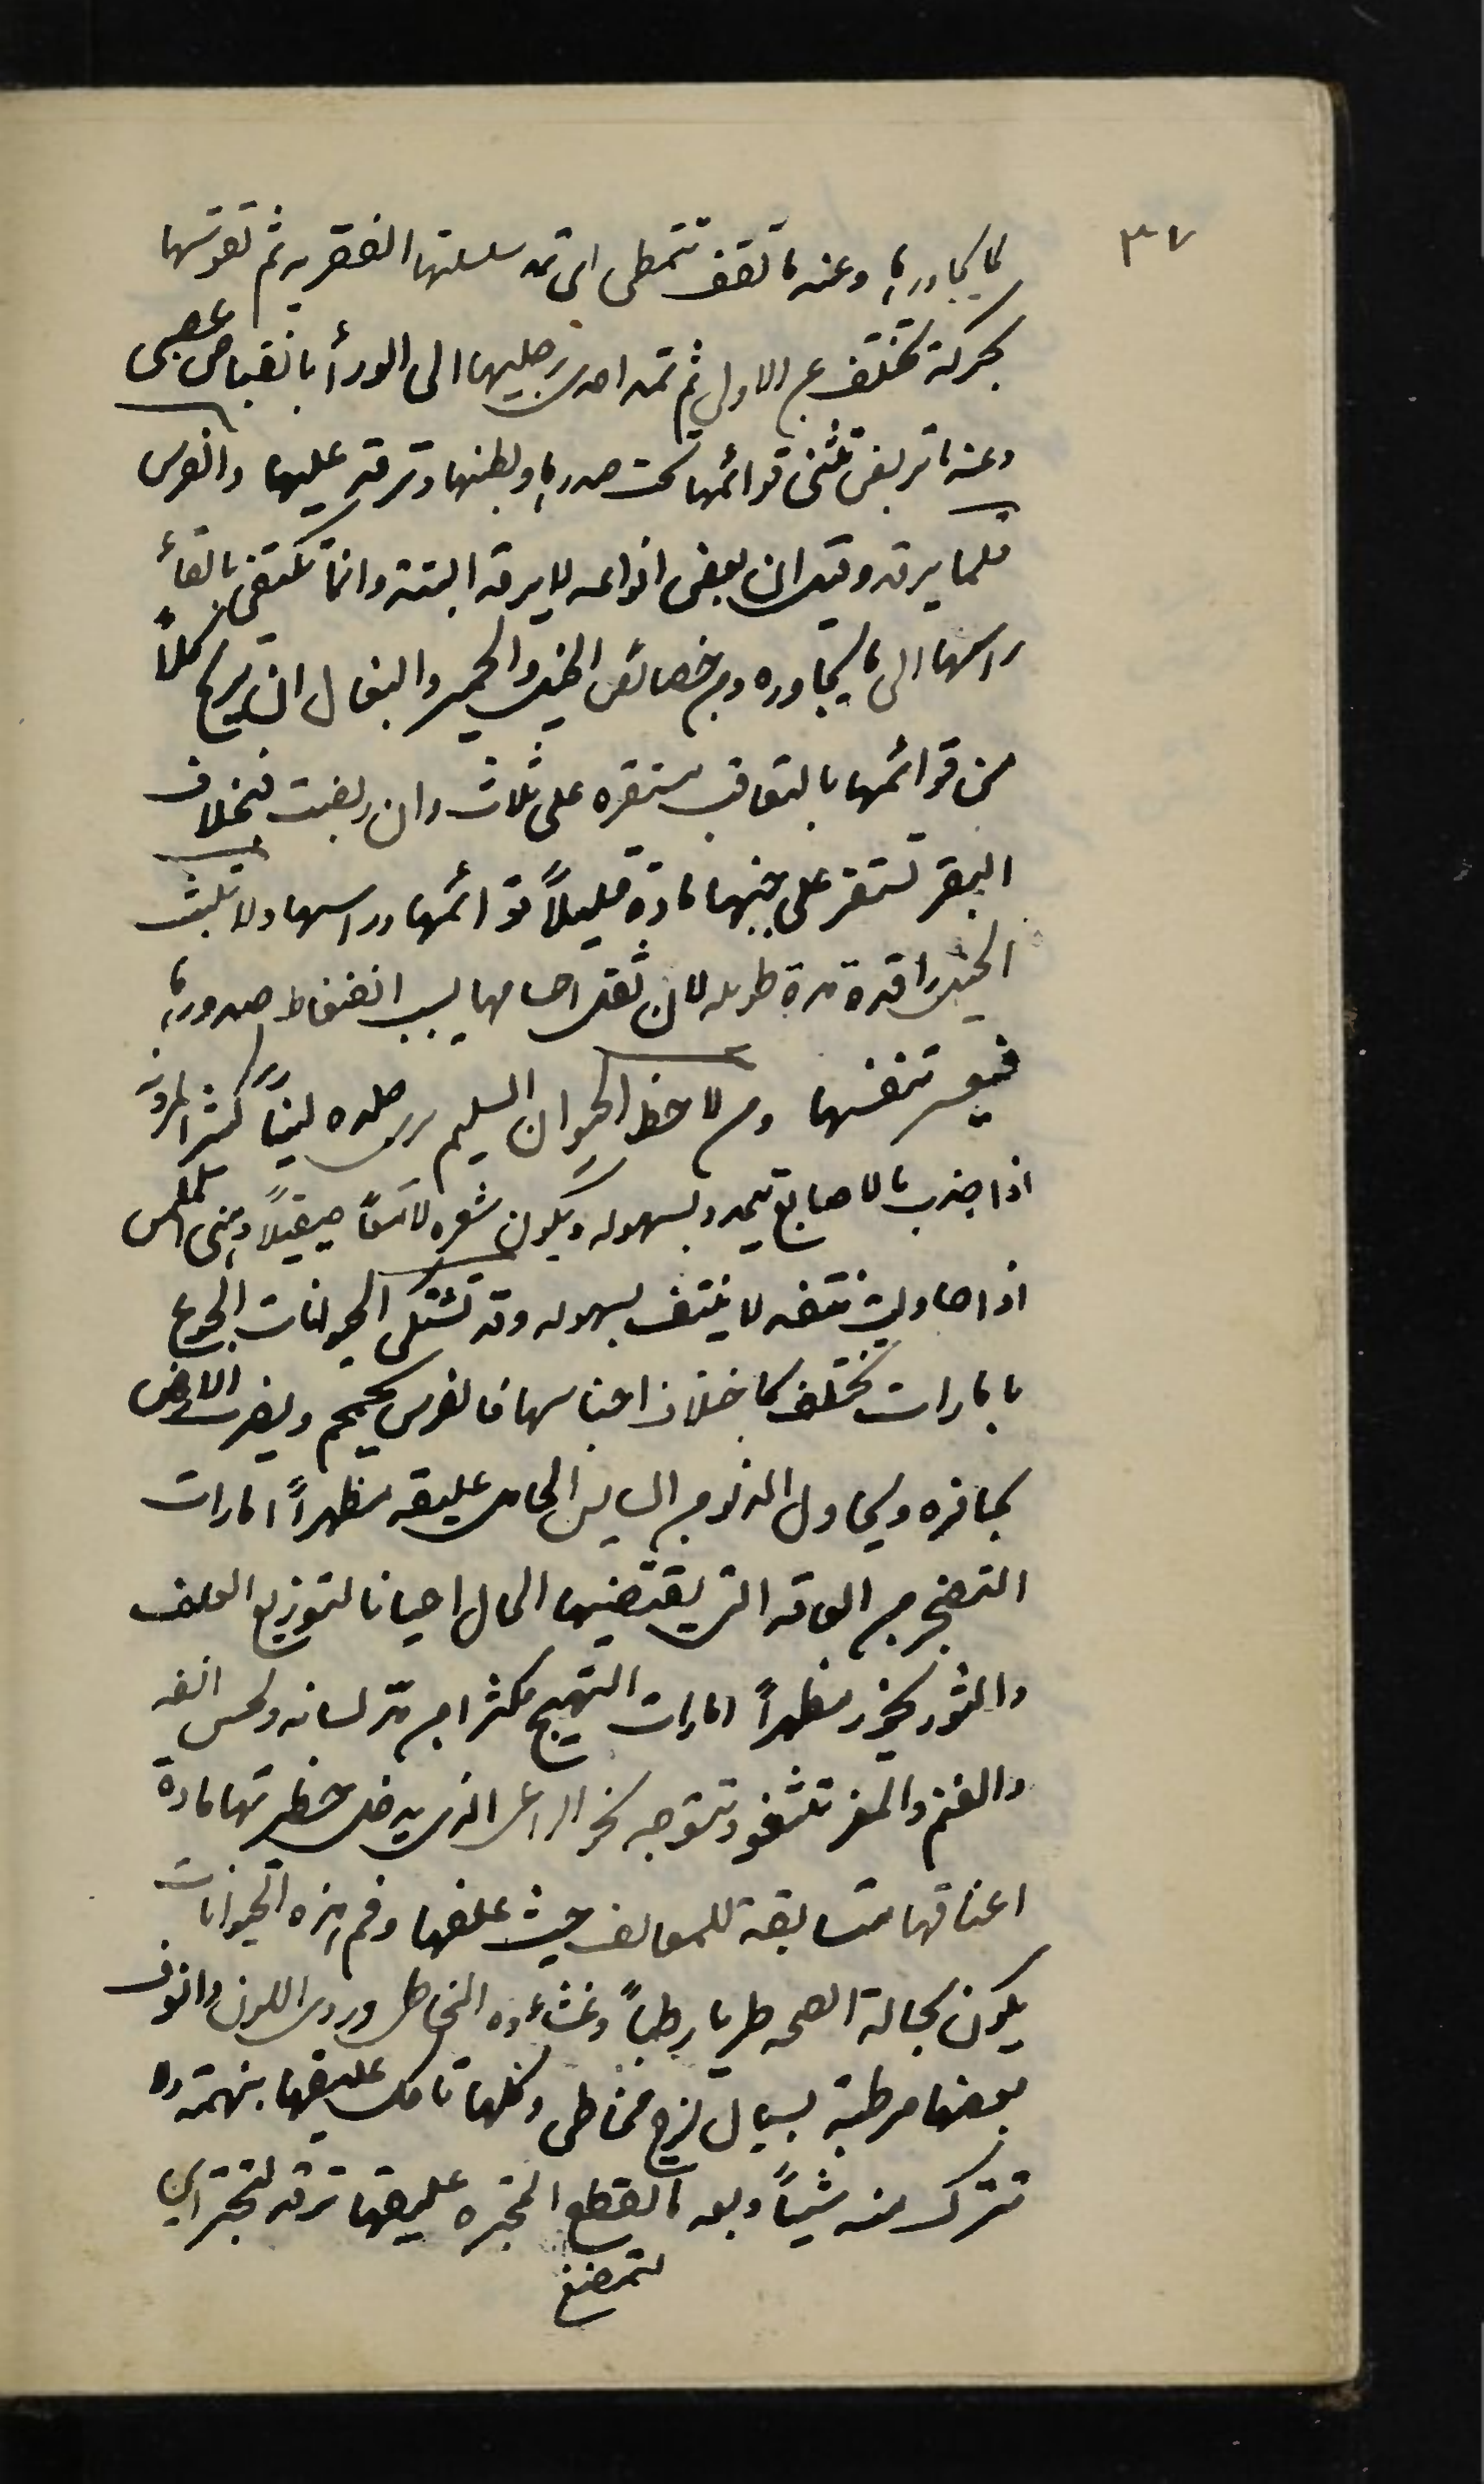 ٣٧
لما يجاورها وعندما تقف تتمطى اي تمد سلسلتها الفقريه ثم تقوسها
بحركة تختلف عن الاولى ثم تمد احدى رجليها الى الورأ بانقباض عصبي
وعندما تربض تثنى قوائمها تحت صدرها وبطنها وترقد عليها والفرس
قلما يرقد وقيل ان بعض انواعه لا يرقد البتة وانما تكتفي بالقأ
راسها الى ما يجاوره ومن خصائص الخيل والحمير والبغال ان تريح كلاً
من قوائمها بالتعاقب مستقره على ثلاث وان ربضت فبخلاف
البقر تستقر على جنبها مادة قليلاً قوائمها وراسها ولا تلبث
الخيل راقدة مدة طويله لان ثقل اجسامها يسبب انضغاط صدورها
فيعسر تنفسها ومن لاحظ الحيوان السليم رى جلده ليناً كثير المرونه
اذا جذب بالاصابع يتمدد بسهوله ويكون شعره لامعاً صيقيلاً ومنى الملمس
اذا حاولت نتفه لا ينتف بسهوله وقد تشتكى الحيوانات الجوع
بامارات تختلف باختلاف اجناسها فالفرس يحمحم ويضرب الارض
بحافره ويحاول الدنو من السايس الحامل عليقه مظهراً امارات
التضجر من العاقه التى يقتضيها الحال احيانا لتوزيع العلف
والثور يخور مظهراً امارات التهيج مكثرا من مد لسانه ولحس انفه
والغنم والمعز تثغو وتتوجه نحو الراعى الذى يدخل حظيرتها مادة
اعناقها متسابقة للمعالف حيث علفها وفم هذه الحيوانات
يكون بحالة الصحه طريا رطباً وغشاءوه المخاطى وردى اللون وانوف
بعضها مرطبة بسيال لزج مخاطى وكلها تاكل عليقها بنهمة ولا
تترك منه شيئاً وبعد ما تقطع المجتره عليقها ترقد لتجتر اى
لتمضغ